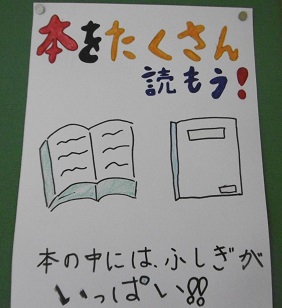 本をたくさん
読もう!
本の中には、ふしぎが
いっぱい!!